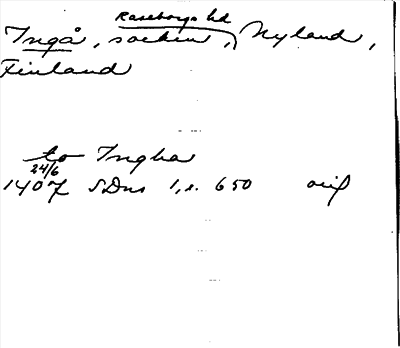 Raseborgs hd
Ingå, socken, Nyland,
Finland
to Ingha
24/6
1407 SDns 1, s. 650 orig